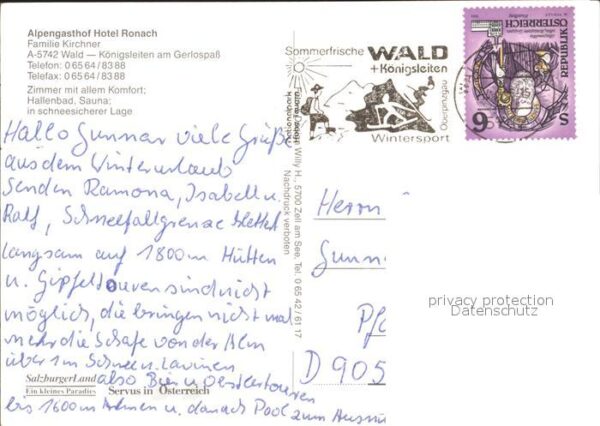 Alpengasthof Hotel Ronach
Familie Kirchner
A-5742 Wald — Königsleiten am Gerlospaß
Telefon: 0 65 64 / 83 88
Telefax: 0 65 64 / 83 88
Zimmer mit allem Komfort;
Hallenbad, Sauna:
in schneesicherer Lage
Hallo Gunnar viele Grüße
aus dem Winterurlaub
senden Ramona, Isabell u.
Ralf, Schneefallgrenze klettert
langsam auf 1800m Hütten
u. Gipfeltouren sind nicht
möglich, die bringen nicht mal
mehr die Schafe von der Alm
über 1m Schnee u. Lawinen
also Bier u.
bis 1600m Almen u. danach Pool zum
SalzburgerLand
Ein kleines Paradies
Servus in Österreich
Willy H., 5700 Zell am See, Tel. 0 65 42 / 61 17
Nachdruck verboten
Sommerfrische WALD
+ Königsleiten
Nationalpark
Hohe Tauern
Oberpinzgau
Wintersport
REPUBLIK
ÖSTERREICH
S 6
Herrn
Gunn
D 905
privacy protection
Datenschutz